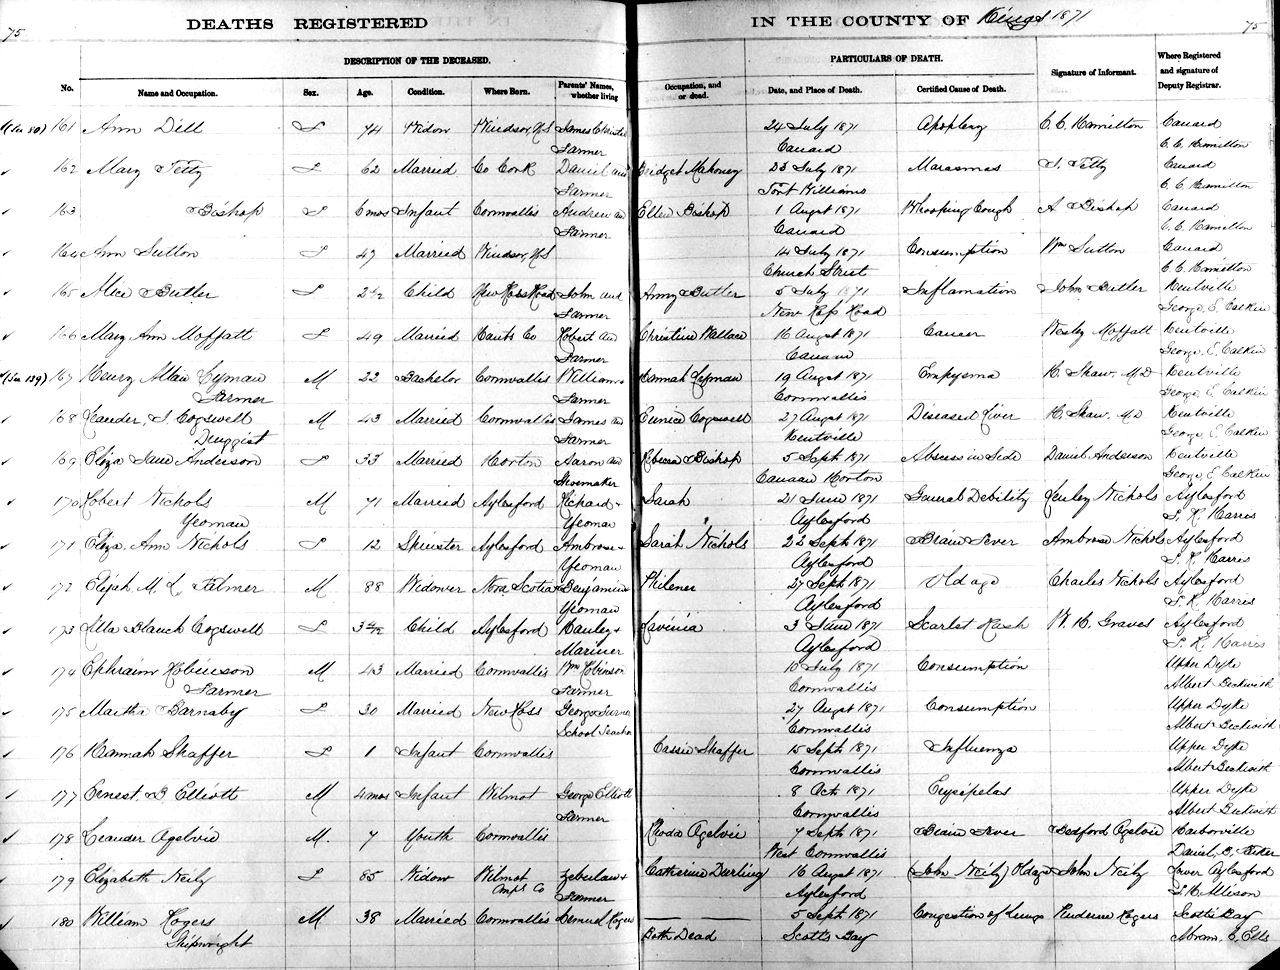 75 DEATHS REGISTERED IN THE COUNTY OF Kings 1871 75
DESCRIPTION OF THE DECEASED. PARTICULARS OF DEATH.
No. Name and Occupation. Sex. Age. Condition. Where Born. Parents' Names, whether living Occupation, and or dead. Date, and Place of Death. Certified Cause of Death. Signature of Informant. Where Registered and signature of Deputy Registrar.
161 Ann Dill F 74 Widow Windsor, NS James 24 July 1871 Apoplexy C. C. Hamilton Canard
Farmer Canard C. C. Hamilton
162 Mary Tetty F 62 Married Co Cork Daniel and Bridget Mahoney 23 July 1871 Marasmas Tetty Canard
Farmer Port Williams C. C. Hamilton
163 Bishop F 6 mos Infant Cornwallis Andrew and Ellen Bishop 1 Augst 1871 Whooping Cough A Bishop Canard
Farmer Canard C. C. Hamilton
164 Ann Sutton F 47 Married Windsor, NS 14 July 1871 Consumption Wm Sutton Canard
Church Street C. C. Hamilton
165 Alice Butler F 2½ Child New Ross Road John and Anny Butler 5 July 1871 Inflamation John Butler Kentville
Farmer New Ross Road George E. Calkin
166 Mary Ann Moffatt F 49 Married Hants Co Robert and Christine Wallace 16 August 1871 Cancer Wesley Moffatt Kentville
Farmer Canaan George E. Calkin
(See 139) 167 Henry Allan Lyman M 22 Bachelor Cornwallis William & Hannah Lyman 19 Augst 1871 Empyema H. Shaw. M.D Kentville
Farmer Farmer Cornwallis George E. Calkin
168 Leander, S. Cogswell M 43 Married Cornwallis James and Eunice Cogswell 27 August 1871 Diseased Liver H. Shaw. M.D Kentville
Druggist Farmer Kentville George E. Calkin
169 Eliza Jane Anderson F 33 Married Horton Aaron and Rebecca Bishop 5 Sept 1871 Abscess in Side Daniel Anderson Kentville
Shoemaker Canaan Horton George E Calkin
170 Robert Nichols M 71 Married Aylesford Richard & Sarah 21 June 1871 General Debility Nichols Aylesford
Yeoman Yeoman Aylesford S. R. Harris
171 Eliza Ann Nichols F 12 Spinster Aylesford Ambrose & Sarah Nichols 22 Sept 1871 Brain Fever Ambrose Nichols Aylesford
Yeoman Aylesford S. R. Harris
172 Elijah M. L. Palmer M 88 Widower Nova Scotia Benjamin Philener 27 Sept 1871 Old age Charles Nichols Aylesford
Yeoman Aylesford S. R. Harris
173 Blanch Cogswell F Child Aylesford & Lavinia 3 June 1871 Scarlet Rash W. H. Graves Aylesford
Mariner Aylesford S. R. Harris
174 Ephraim Robinson M 43 Married Cornwallis Wm Robinson 10 July 1871 Consumption Upper Dyke
Farmer Farmer Cornwallis Albert Beckwith
175 Martha Barnaby F 30 Married New Ross George 27 August 1871 Consumption Upper Dyke
School Teacher Cornwallis Albert Beckwith
176 Hannah Shaffer F 1 Infant Cornwallis Cassie Shaffer 15 Sept 1871 Influenza Upper Dyke
Cornwallis Albert Beckwith
177 Ernest. B Elliott M 4 mos Infant Wilmot George Elliott 8 Oct 1871 Erysipelas Upper Dyke
Farmer Cornwallis Albert Beckwith
178 Leander Ogelvie M. 7 Youth Cornwallis Rhoda Ogelvie 7 Sept 1871 Brain Fever Bedford Ogelvie Harborville
West Cornwallis Daniel B. Parker
179 Elizabeth Neily F 85 Widow Wilmot Zebulan & Catherine Darling 16 August 1871 (John Neily) Old age John Neily Lower Aylesford
Anps Co Farmer Aylesford
180 William Rogers M 38 Married Cornwallis Lemuel Rogers 5 Sept 1871 Congestion of Lungs Rogers Scotts Bay
Shipwright Both Dead Scotts Bay Abram. E. Ells